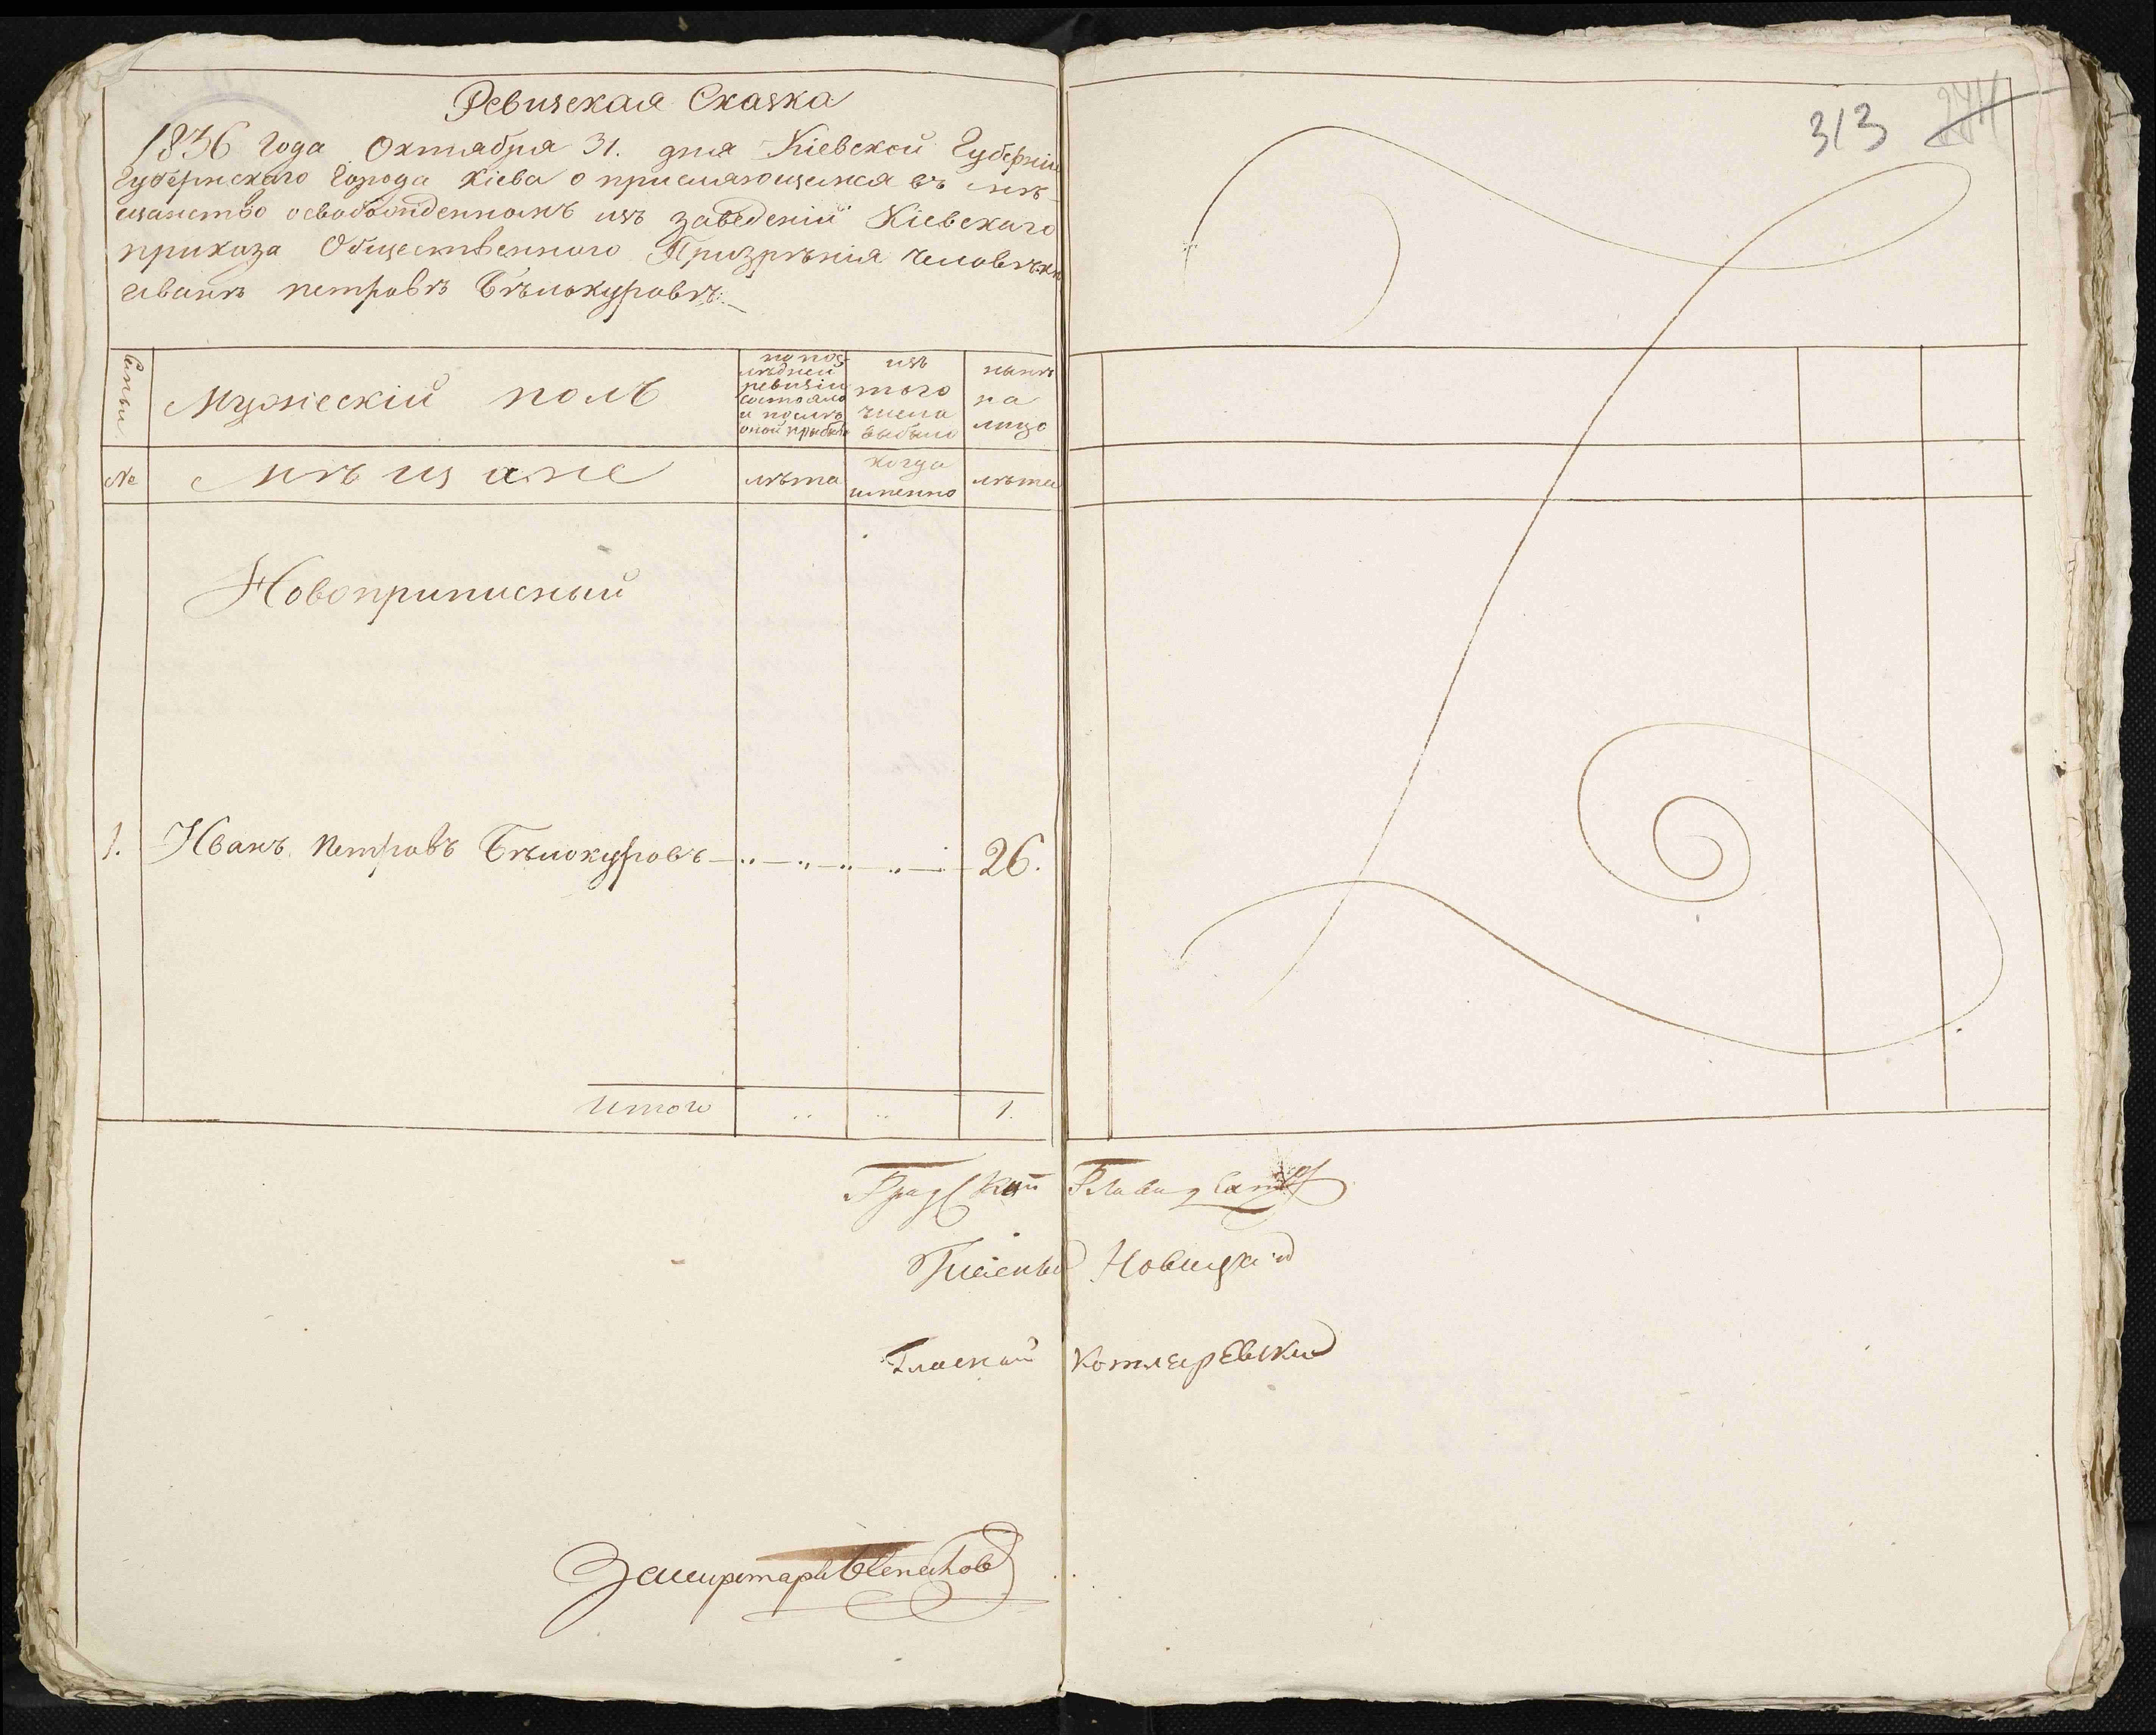 Ревизская Сказка
1836 года Октября 31. дня Кіевской Губерніи
Губернскаго Города Кіева о причисляющемся въ мѣ-
щанство освобожденномъ изъ заведеній Кіевскаго
приказа Общественнаго Призрѣнія человѣкѣ
Иванѣ петровѣ Бѣлокуровѣ:
313
274
Семьи
Мужескій полъ
по пос-
лѣдней
ревизіи
состояло
и послѣ
оной прибыло
изъ
того
числа
выбыло
нынѣ
на
лицо
№
мѣщане
лѣта
когда
именно
лѣта
Новоприписный
1. Иванъ Петровъ Бѣлокуровъ 26.
Итого 1.
Градскій Глава
Гласный Новицкій
Гласный Котляревскій